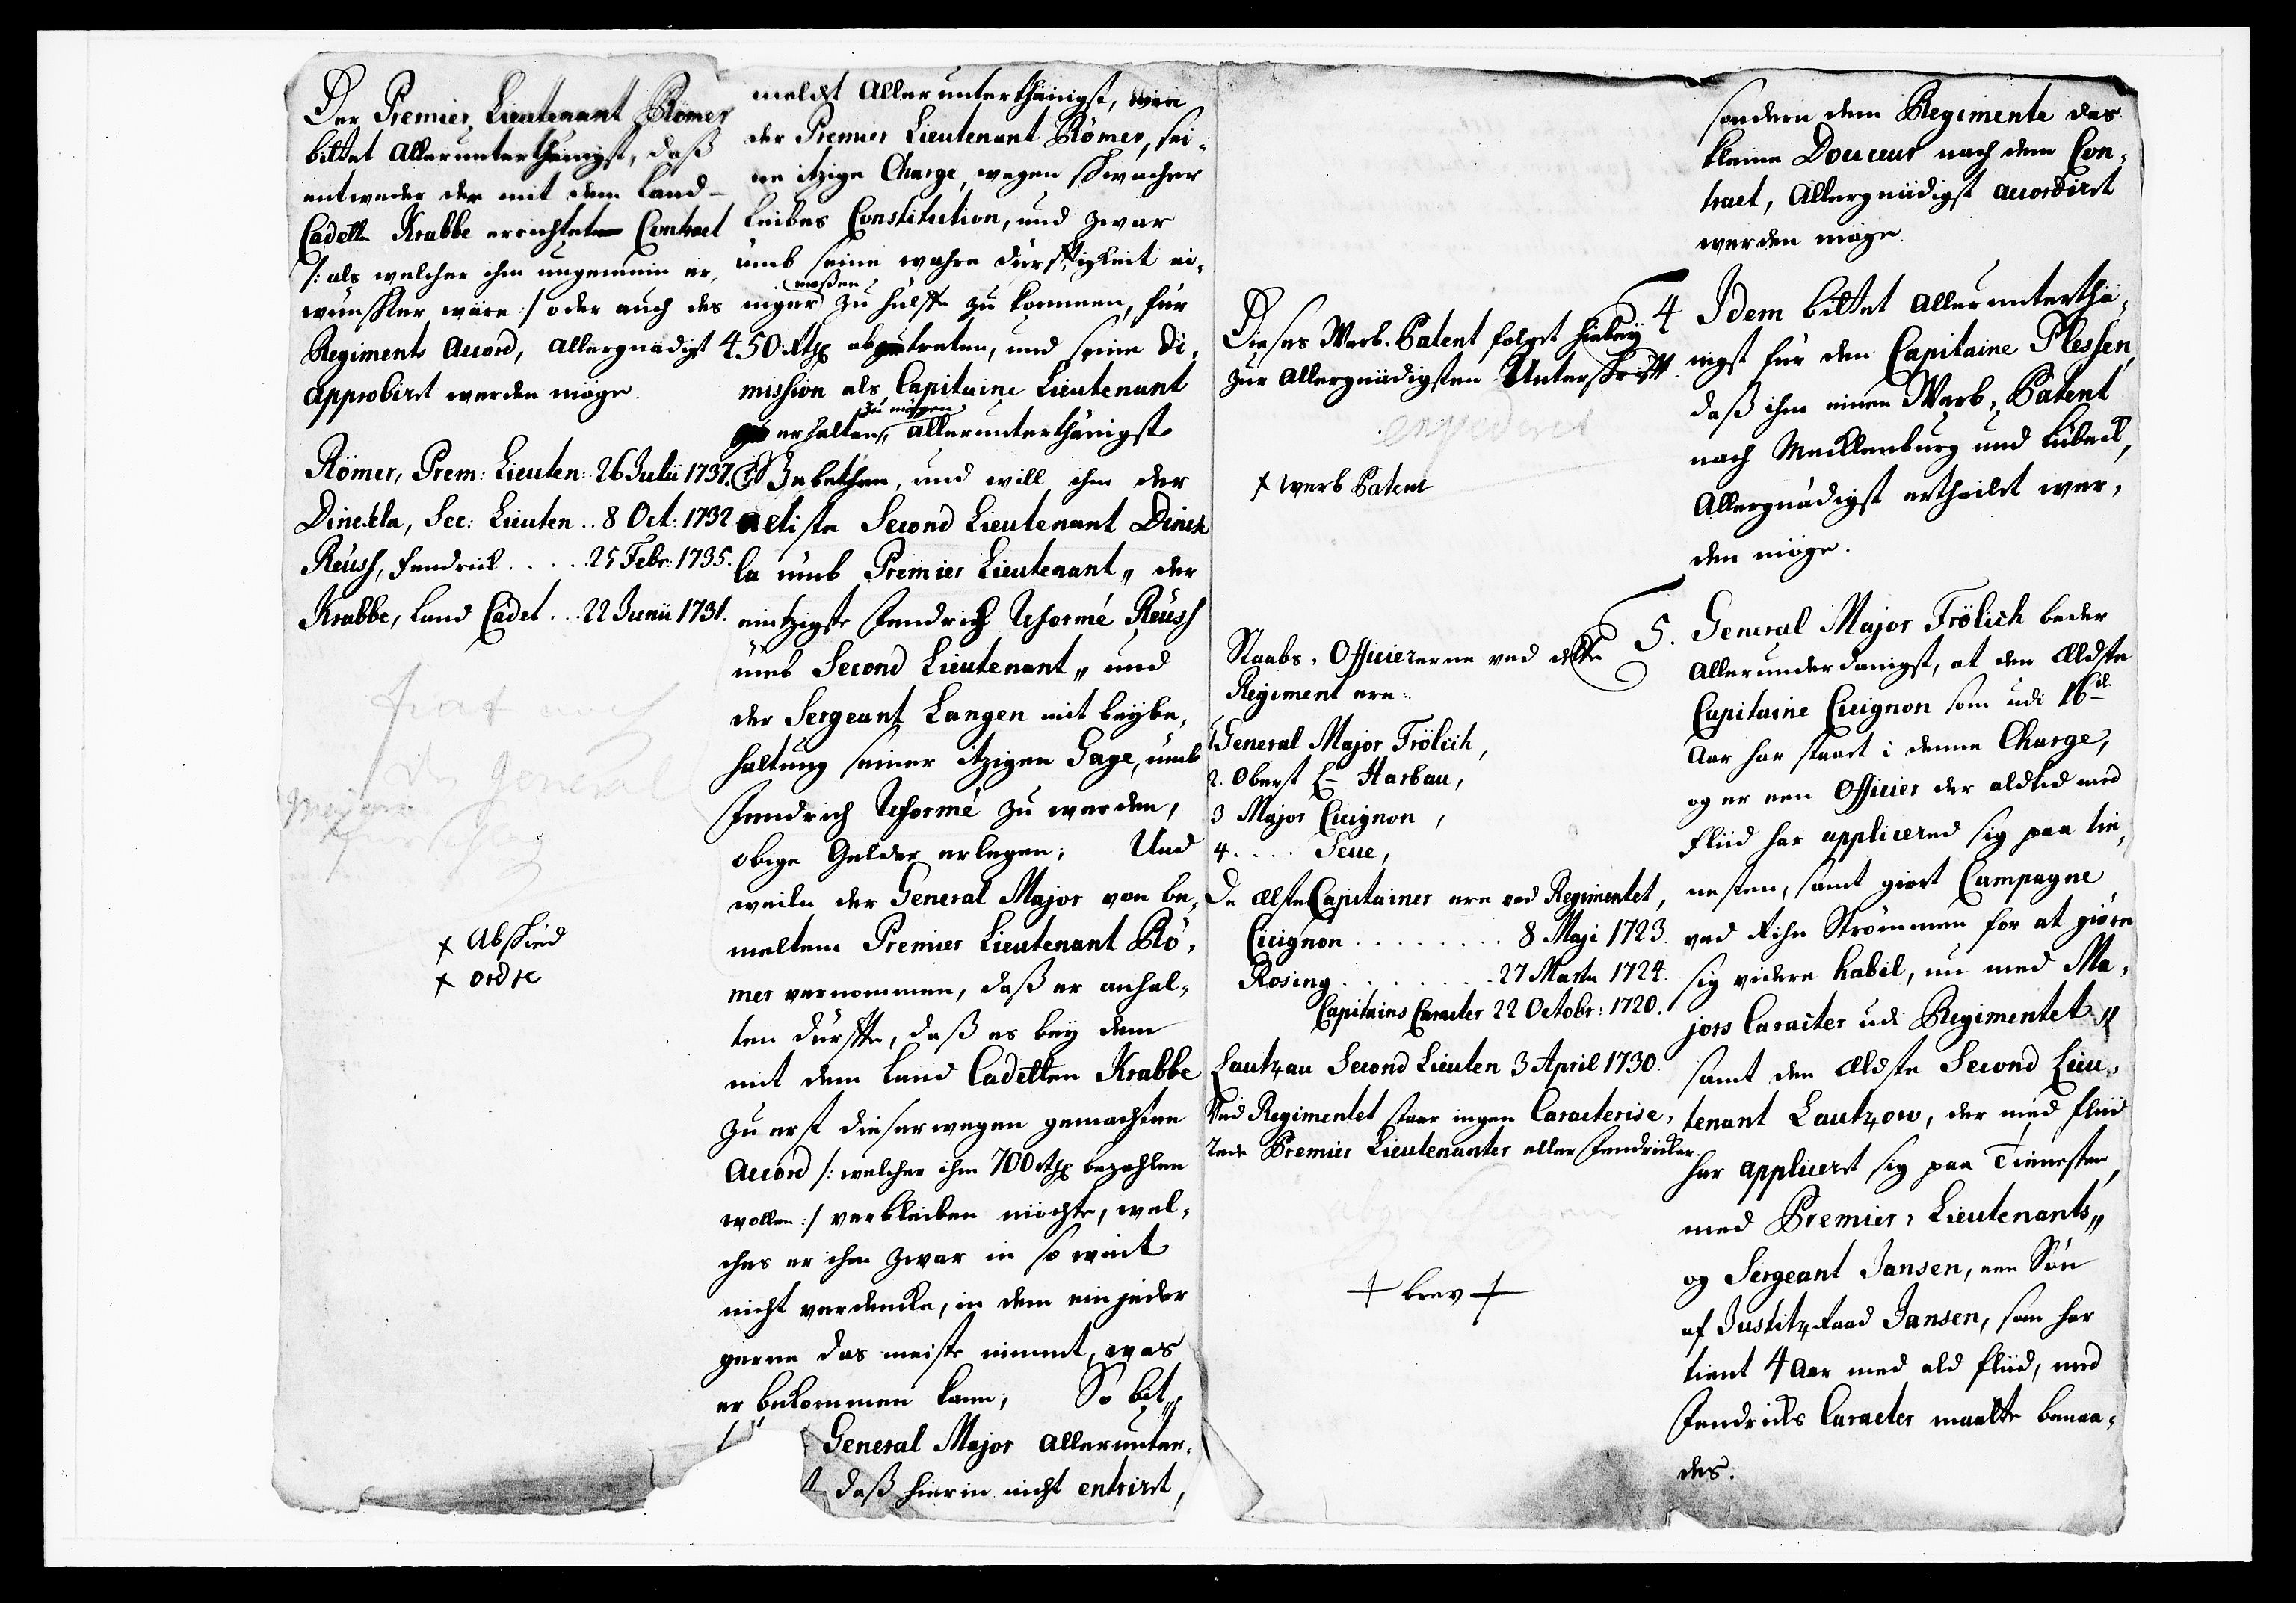 Der Premier Lieutenant Römer
bittet Allerunterthänigst, daß
entweder der mit dem Land-
Cadett Krabbe errichtete Contract
/: als welcher ihm ungemein er,
wünschter wäre :/ oder auch des
Regiments Accord, Allergnädigst
approbiret werden möge.
Römer, Prem: Lieuten: 26 Julii 1737.
Dinckla, Sec: Lieuten .. 8 Oct: 1732
Reuss, Fendrick .... 25 Febr: 1735.
Krabbe, Land Cadet ... 22 Junii 1731.
fiat nach
des General
Majors
Vorschlag
+ Abschied
+ ordre
meldet Allerunterthänigst, wie
der Premier Lieutenant Römer, sei,
ne itzige Charge, wegen schwacher
Leibes Constitution, und zwar
umb seine wahre Dürfftigkeit ei,
niger maßen zu hülffe zu kommen, für
450 Rthl abzutreten, und seine Di,
mission als Capitaine Lieutenant
erhalten zu mögen, Allerunterthänigst
Gebethen, und will ihm der
ältiste Second Lieutenant Dinck
la umb Premier Lieutenant,, der
eintzigste Fendrich Reformé Reuss
umb Second Lieutenant,, und
der Sergeant Langen mit beÿbe,
haltung seiner itzigen Gage, umb
Fendrich Reformé zu werden,
obige Gelder erlegen; Und
weiln der General Major von be,
meltem Premier Lieutenant Rö,
mer vernommen, daß er anhal,
ten dürffte, daß es beÿ dem
mit dem Land Cadetten Krabbe
zu erst dieserwegen gemachten
Accord /: welcher ihm 700 Rthl bezahlen
wollen :/ verbleiben möchte, wel,
ches er ihm zwar in so weit
nicht verdencke, in dem ein jeder
gerne das meiste nimmt, was
er bekommen kann; So bit,,
General Major Allerunter,
t daß hierin nicht entriret,
Dieses Werb. Patent folget hiebeÿ
zur Allergnädigsten Unterschrifft.
expederet
+ Werb Patent
Staabs, Officiererne ved dette
Regiment ere:
1 General Major Frölich,
2. Oberst L- Harbau,
3 Major Cicignon,
4 .... Seue,
De ælste Capitainer ere ved Regimentet,
Cicignon ........ 8 Maji 1723.
Rosing ....... 27 Martii 1724.
Capitains Caracter 22 Octobr: 1720.
Lautzau Second Lieuten 3 April 1730.
Ved Regimentet staar ingen Caracterise,
rede Premier Lieutenanter eller Fendricker.
+ brev +
sondern dem Regimente das
kleine Douceur nach dem Con,
tract, Allergnädigst accordiret
werden möge.
4 Idem bittet Allerunterthä,
nigst für den Capitaine Plessen,
daß ihm einen Werb, Patent
nach Mecklenburg und Lübeck,
Allergnädigst ertheilet wer,
den möge.
5. General Major Frölich beder
Allerunderdanigst, at den Ældste
Capitaine Cicignon som udi 16de
Aar har staaet i denne Charge,
og er een Officier der altid med
Fliid har appliceret sig paa tie,
nesten, samt giort Campagne
ved Rihn Strömmen for at giøre
sig videre habil, nu med Ma,
jors Caracter udi Regimentet,,
samt den Ældste Second Lieu,
tenant Lautzow, der med Fliid
har appliceret sig paa Tienesten,
med Premier, Lieutenants,,
og Sergeant Jansen, een Søn
af Justitz Raad Jansen, som har
tient 4 Aar med ald Fliid, med
Fendricks Caracter maatte benaa,
des.